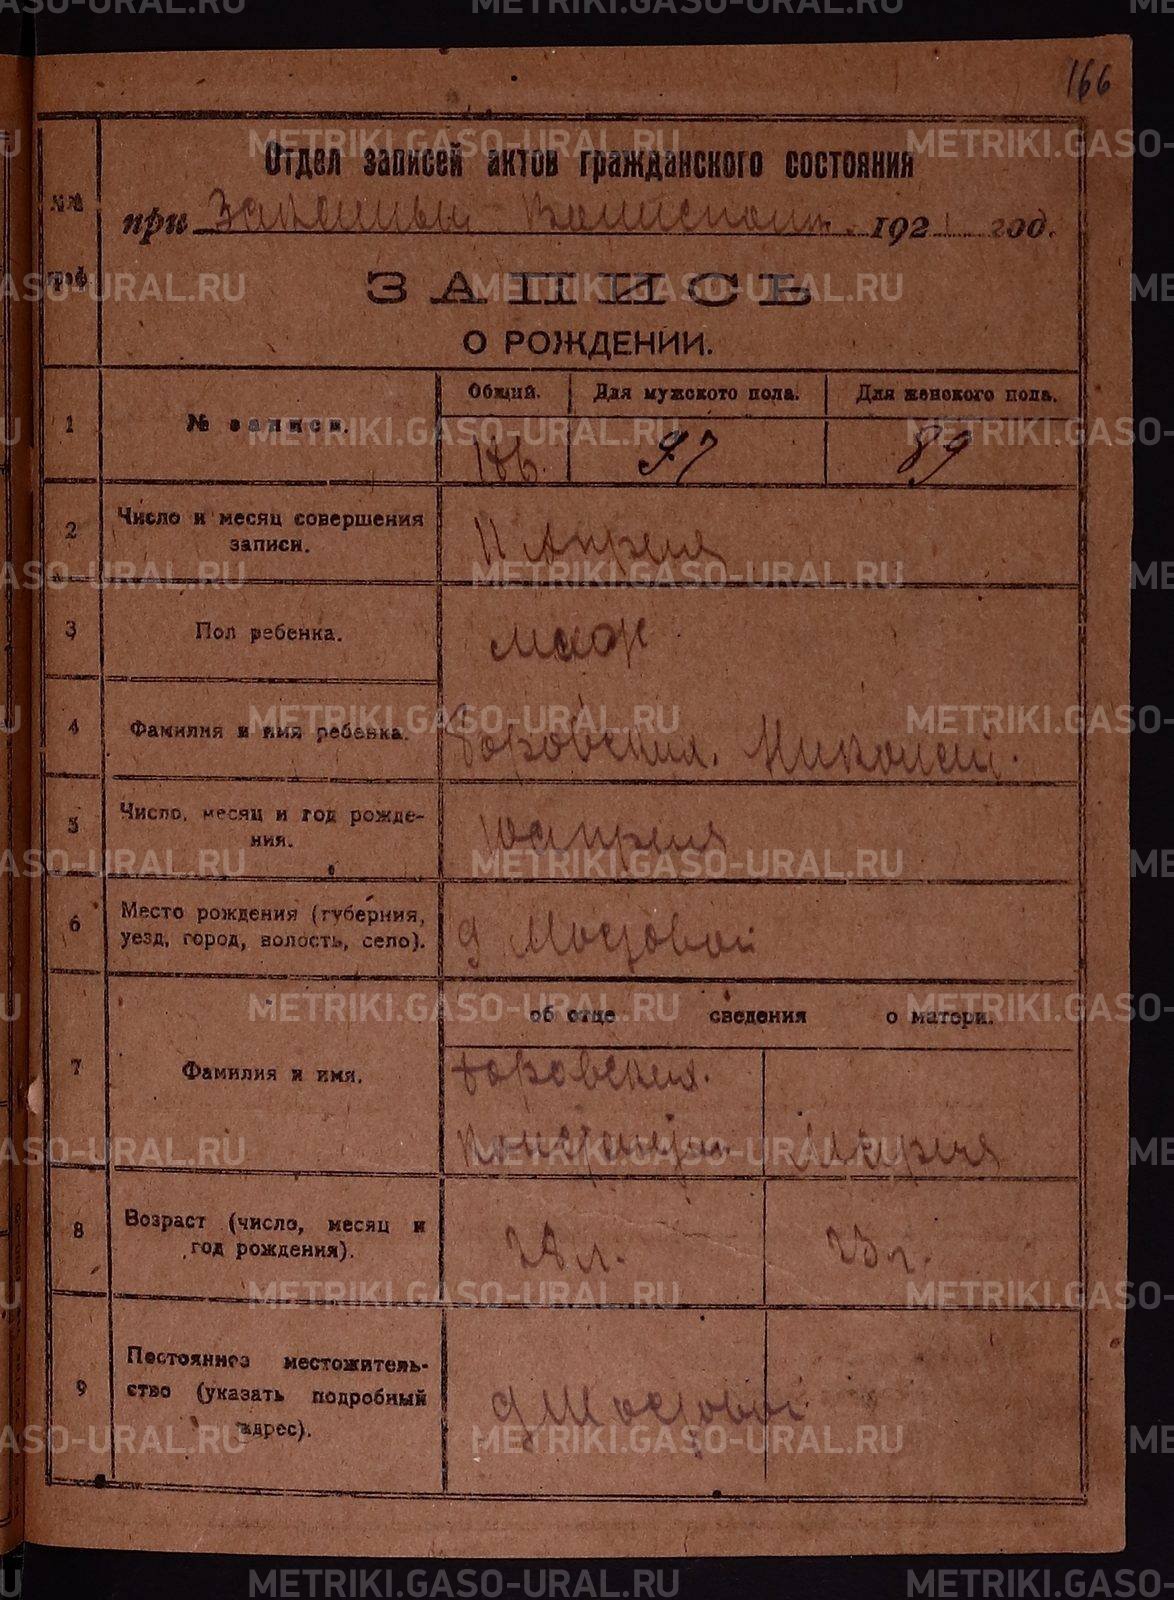 166
Отдел записей актов гражданского состояния
№№ граф.
при 1921 год.
ЗАПИСЬ
О РОЖДЕНИИ.
1 № записи. Общий. Для мужского пола. Для женского пола.
186. 97 89
2 Число и месяц совершения
записи.
11 Апреля
3 Пол ребенка.
муж
4 Фамилия и имя ребенка.
Боровских. Николай.
5 Число, месяц и год рожде-
ния.
10 апреля
6 Место рождения (губерния,
уезд, город, волость, село).
д Мостовой
об отце сведения о матери.
7 Фамилия и имя.
Боровских.
Константин Мария
8 Возраст (число, месяц и
год рождения).
28 л. 23 г.
9 Постоянное местожитель-
ство (указать подробный
адрес).
д Мостовой
METRIKI.GASO-URAL.RU